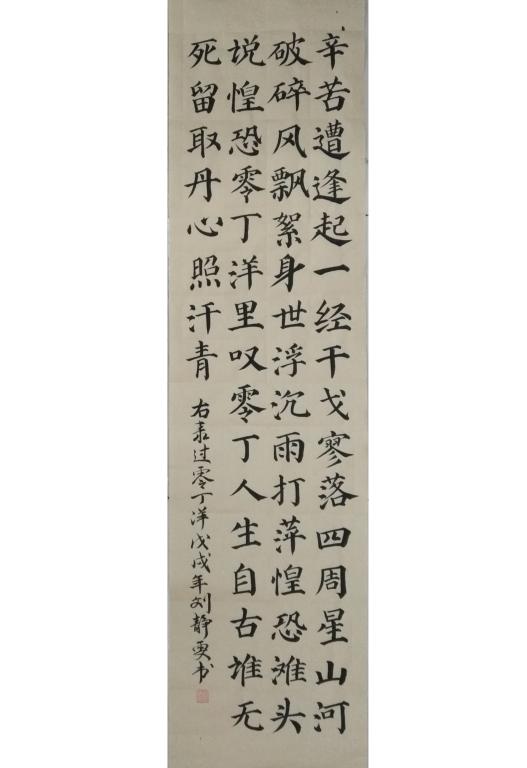 辛苦遭逢起一经干戈寥落四周星山河
破碎风飘絮身世浮沉雨打萍惶恐滩头
说惶恐零丁洋里叹零丁人生自古谁无
死留取丹心照汗青
右录过零丁洋戊戌年刘静雯书